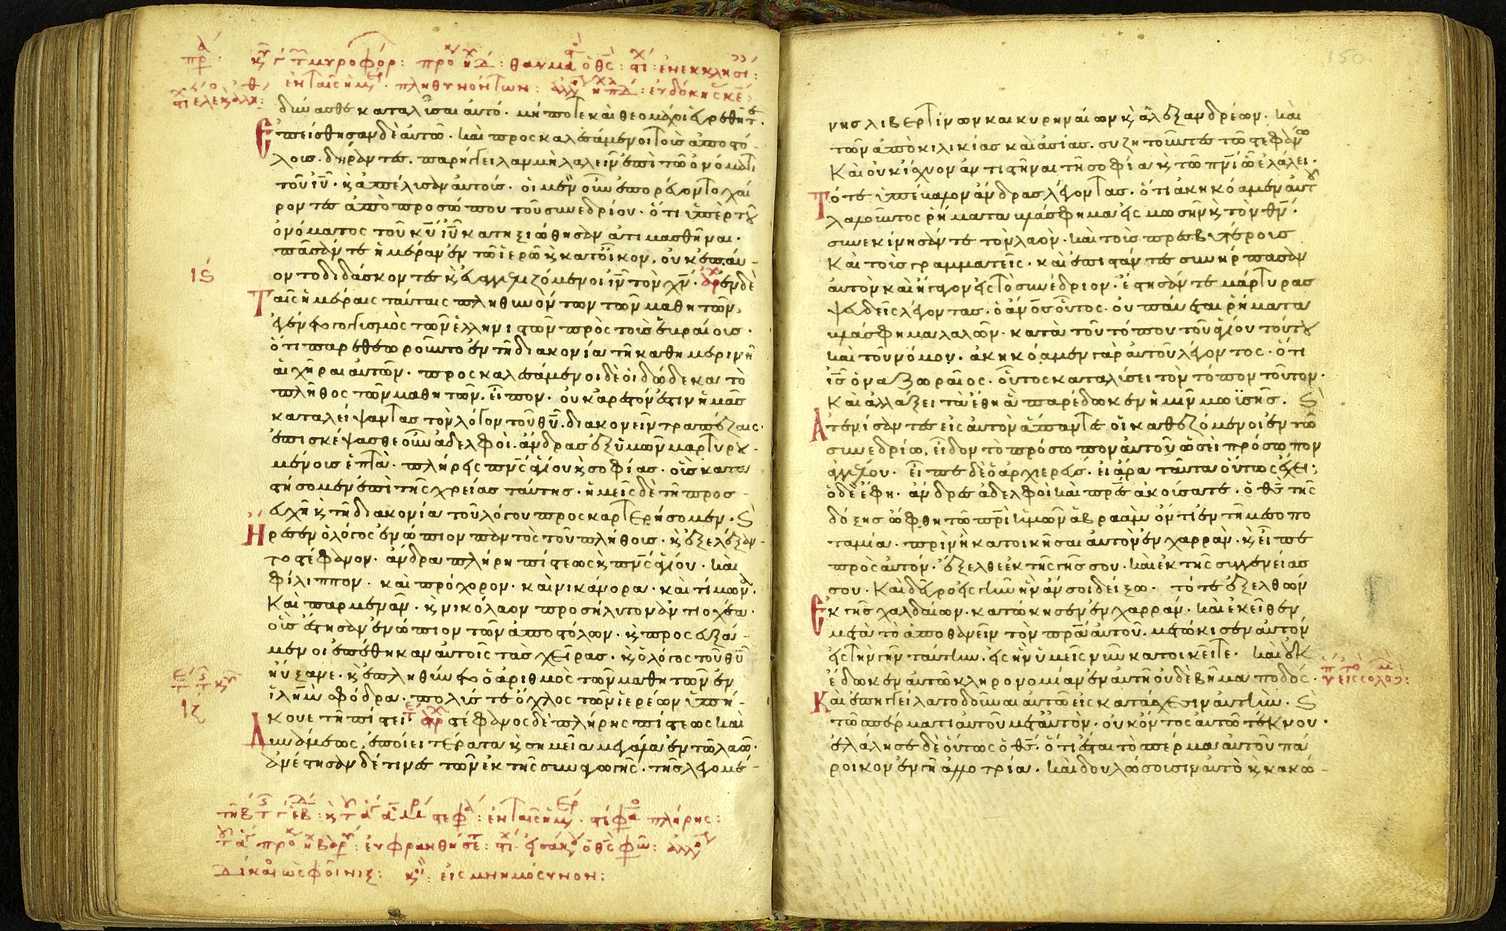 δύνασθε καταλῦσαι αὐτό· μήποτε καὶ θεομάχοι εὑρεθῆτε·
Ἐπείσθησαν δὲ αὐτῶ· καὶ προσκαλεσάμενοι τοὺς ἀποστό-
λους· δείραντες· παρήγγειλαν μὴ λαλεῖν ἐπὶ τῶ ὀνόματι
τοῦ ιυ· κ ἀπέλυσαν αὐτούς· οἱ μὲν οὖν ἐπορεύοντο χαί
ροντες ἀπὸ προσώπου τοῦ συνεδρίου· ὅτι ὑπὲρ τοῦ
ὀνόματος τοῦ κυ ιυ κατηξιώθησαν ἀτιμασθῆναι·
πᾶσάν τε ἡμέραν ἐν τῶ ἱερῶ κ κατοῖκον· οὐκ ἐπαύ-
οντο διδάσκοντες κ εὐαγγελιζόμενοι ιν τὸν χν· ἐν δὲ
ις
Ταῖς ἡμέραις ταύταις πληθυνόντων τῶν μαθητῶν·
ἐγένετο γογγυσμὸς τῶν ἑλληνιστῶν πρὸς τοὺς ἑβραίους·
ὅτι παρεθεωροῦντο ἐν τῆ διακονία τῆ καθημερινῆ
αἱ χῆραι αὐτῶν· προσκαλεσάμενοι δὲ οἱ δώδεκα τὸ
πλῆθος τῶν μαθητῶν· εἶπον· οὐκ ἀρεστόν ἐστιν ἡμᾶς
καταλείψαντας τὸν λόγον τοῦ θυ· διακονεῖν τραπέζαις·
ἐπισκέψασθε οὖν ἀδελφοὶ· ἄνδρας ἐξ ὑμῶν μαρτυρου
μένους ἑπτὰ· πλήρεις πνς ἁγίου κ σοφίας· οὓς κατα
στήσομεν ἐπὶ τῆς χρείας ταύτης· ἡμεῖς δὲ τῆ προσ-
ευχῆ κ τῆ διακονία τοῦ λόγου προσκαρτερήσομεν· κ
Ἤρεσεν ὁ λόγος ἐνώπιον παντὸς τοῦ πλήθους· κ ἐξελέξαν-
το στέφανον· ἄνδρα πλήρη πίστεως κ πνς ἁγίου· καὶ
φίλιππον· καὶ πρόχορον· καὶ νικάνορα· καὶ τίμωνα
καὶ παρμενᾶν· κ νικόλαον προσήλυτον ἀντιοχέα·
οὓς ἔστησαν ἐνώπιον τῶν ἀποστόλων· κ προσευξά-
μενοι ἐπέθηκαν αὐτοῖς τὰς χεῖρας· κ ὁ λόγος τοῦ θυ
ηὔξανε· κ ἐπληθύνετο ὁ ἀριθμὸς τῶν μαθητῶν ἐν
ιλημ σφόδρα· πολύς τε ὄχλος τῶν ἱερέων ὑπή-
ιζ
κουε τῆ πίστει στέφανος δὲ πλήρης πίστεως καὶ
Δυνάμεως, ἐποίει τέρατα κ σημεῖα μεγάλα ἐν τῶ λαῶ·
ἀνέστησαν δέ τινες τῶν ἐκ τῆς συναγωγῆς· τῆς λεγομέ-
νης λιβερτίνων καὶ κυρηναίων κ ἀλεξανδρέων· καὶ
τῶν ἀπὸ κιλικίας καὶ ἀσίας· συζητοῦντες τῶ στεφάνω
καὶ οὐκ ἴσχυον ἀντιστῆναι τῆ σοφία κ τῶ πνι ὧ ἐλάλει·
Τότε ὑπέβαλον ἄνδρας λέγοντας· ὅτι ἀκηκόαμεν αὐτοῦ
λαλοῦντος ῥήματα βλάσφημα εἰς μωσῆν κ τὸν θν·
συνεκίνησάν τε τὸν λαὸν· καὶ τοὺς πρεσβυτέρους
καὶ τοὺς γραμματεῖς· καὶ ἐπιστάντες συνήρπασαν
αὐτὸν καὶ ἤγαγον εἰς τὸ συνέδριον· ἔστησάν τε μάρτυρας
ψευδεῖς λέγοντας· ὁ ανος οὗτος· οὐ παύεται ῥήματα
βλάσφημα λαλῶν· κατὰ τοῦ τόπου τοῦ ἁγίου τούτου
καὶ τοῦ νόμου· ἀκηκόαμεν γὰρ αὐτοῦ λέγοντος· ὅτι
ις ὁ ναζωραῖος· οὗτος καταλύσει τὸν τόπον τοῦτον·
καὶ ἀλλάξει τὰ ἔθη ἃ παρέδωκεν ἡμῖν μωϋσῆς· κ
Ἀτενίσαντες εἰς αὐτὸν ἅπαντες οἱ καθεζόμενοι ἐν τῶ
συνεδρίω, εἶδον τὸ πρόσωπον αὐτοῦ ὡσεὶ πρόσωπον
ἀγγέλου· εἶπε δὲ ὁ ἀρχιερεύς· εἰ ἄρα ταῦτα οὕτως ἔχει;
ὁ δὲ ἔφη· ἄνδρες ἀδελφοὶ καὶ πρες ἀκούσατε· ὁ θς τῆς
δόξης ὤφθη τῶ πρι ἡμῶν ἀβραὰμ ὄντι ἐν τῆ μεσοπο
ταμία· πρὶν ἢ κατοικῆσαι αὐτὸν ἐν χαρρὰν· κ εἶπε
πρὸς αὐτόν· ἔξελθε ἐκ τῆς γῆς σου· καὶ ἐκ τῆς συγγενείας
σου· καὶ δεῦρο εἰς γῆν ἣν ἄν σοι δείξω· τότε ἐξελθὼν
Ἐκ γῆς χαλδαίων· κατώκησεν ἐν χαρράν· κἀκεῖθεν
μετὰ τὸ ἀποθανεῖν τὸν πρα αὐτοῦ· μετώκισεν αὐτὸν
εἰς τὴν γῆν ταύτην· εἰς ἣν ὑμεῖς νῦν κατοικεῖτε· καὶ οὐκ
ἔδωκεν αὐτῶ κληρονομίαν ἐν αὐτῆ οὐδὲ βῆμα ποδός·
Καὶ ἐπηγγείλατο δοῦναι αὐτῶ εἰς κατάσχεσιν αὐτὴν· κ
τῶ σπέρματι αὐτοῦ μετ αὐτὸν· οὐκ ὄντος αὐτῶ τέκνου·
ἐλάλησε δὲ οὕτως ὁ θς· ὅτι ἔσται τὸ σπέρμα αὐτοῦ πά
ροικον ἐν γῆ ἀλλοτρία· καὶ δουλώσουσιν αὐτὸ κ κακώ-